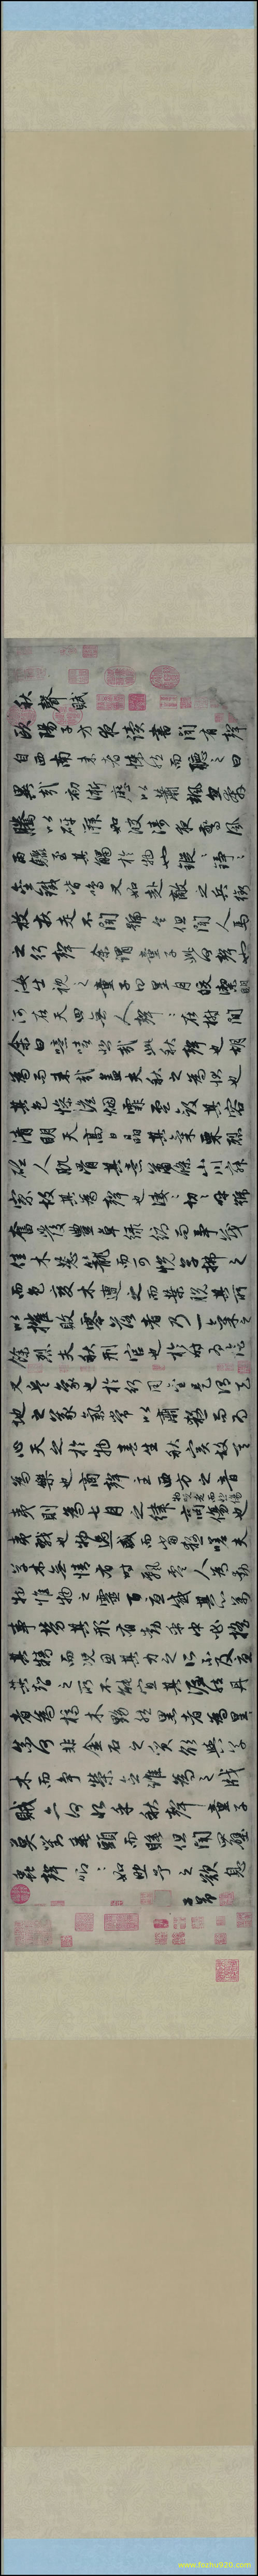 秋聲賦
歐陽子方夜讀書聞有聲
自西南來者悚然而聽之曰
異哉初淅瀝以蕭颯忽奔
騰以砰湃如波濤夜驚風
雨驟至其觸於物也鏦〻錚〻
金鐵皆鳴又如赴敵之兵銜
枚疾走不聞號令但聞人馬
之行聲余謂童子此何聲也
汝出視之童子曰星月皎潔明
河在天四無人聲〻在樹間
余曰噫嘻悲哉此秋聲也胡
為而來哉蓋夫秋之為狀也
其色慘澹煙霏雲斂其容
清明天高日晶其氣栗烈
砭人肌骨其意蕭條山川寂
寥故其為聲也淒〻切〻呼號
奮發豐草綠縟而爭茂
佳木葱蘢而可悅草拂之
而色變木遭之而葉脫其所
以摧敗零落者乃一氣之
餘烈夫秋刑官也於時為陰
又兵象也於行用金是謂天
地之義氣常以肅殺而為
心天之於物春生秋實故其
為樂也商聲主西方之音
夷則為七月之律商傷也物既老而悲傷
夷戮也物過盛而當殺嗟夫
草木無情有時飄零人為動
物惟物之靈百憂感其心萬
事勞其形有動乎中必搖
其精而況思其力之所不及憂
其智之所不能宜其渥然丹
者為槁木黟然黑者為星〻
奈何非金石之質欲與草
木而爭榮念誰為之戕
賊亦何恨乎秋聲童子
莫對垂頭而睡但聞四壁
蟲聲唧〻如助予之歎息
子昂
www.fozhu920.com